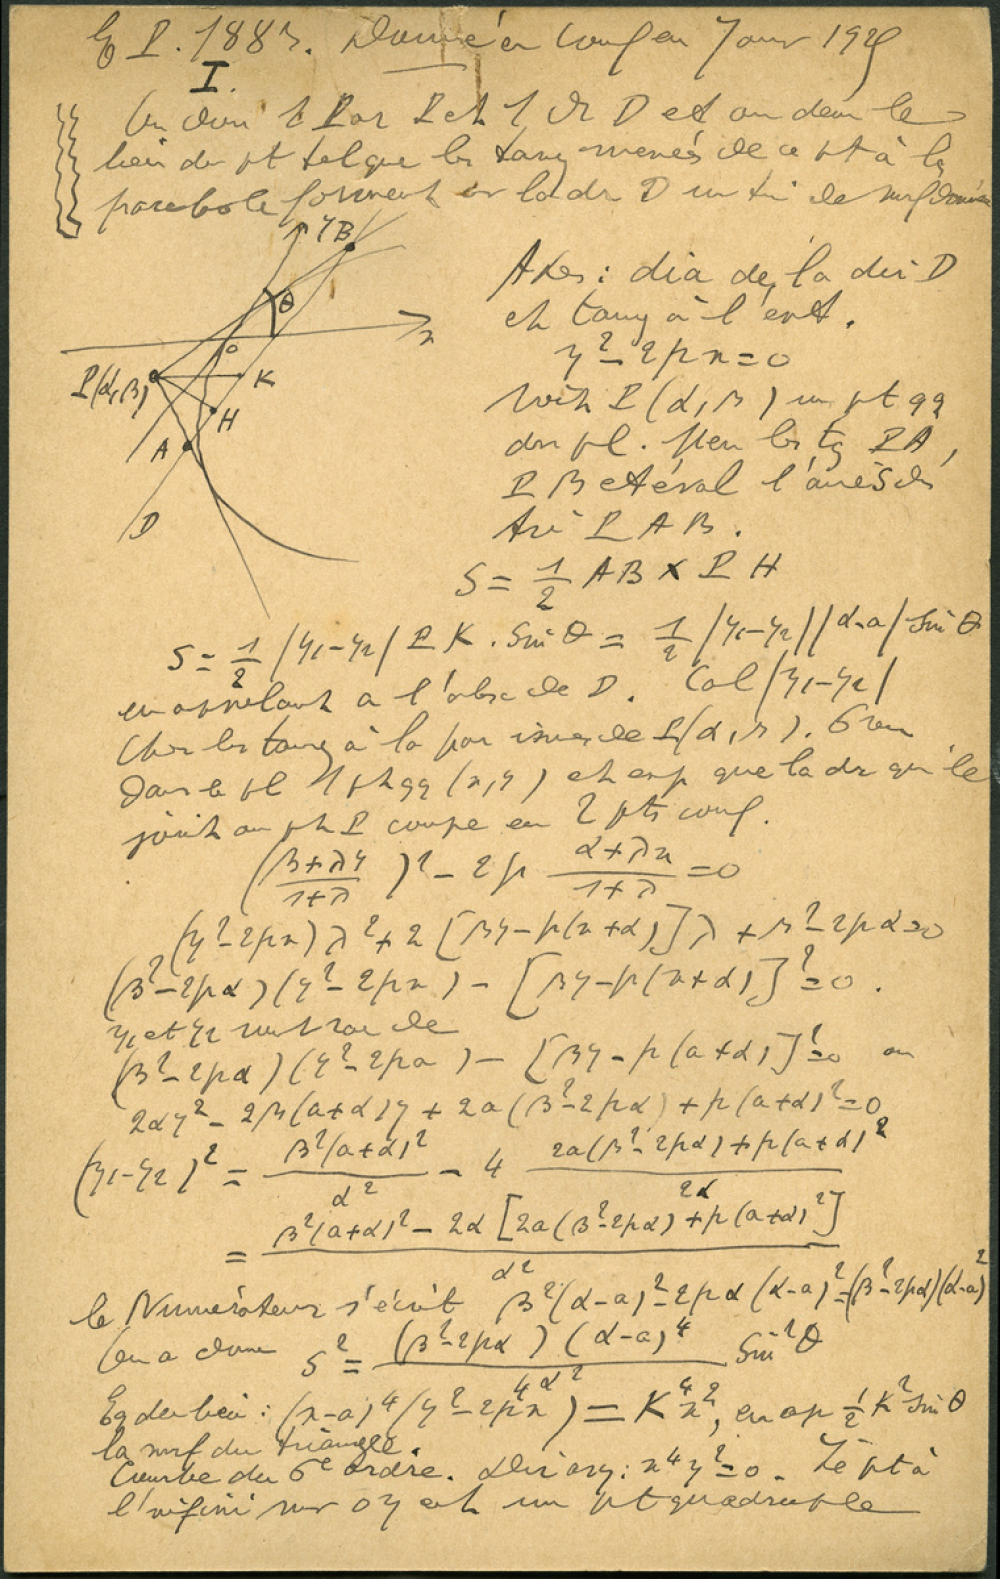 E P. 1883. Donné en conf en Janv 1929
I.
On donne 1 Par P et 1 dr D et on dem le
lieu du pt tel que les tang menées de ce pt à la
parabole forment av la dr D un tri de surf donnée
y B
θ
x
o
P(α,β)
K
H
A
D
Axes : dia de la dir D
et tang à l'ext.
y² - 2px = 0
Soit P(α,β) un pt qq
du pl. Men les tg PA,
PB et éval l'aire S du
tri PAB.
S = 1/2 AB × PH
S = 1/2 |y₁-y₂| PK . Sin θ = 1/2 |y₁-y₂||α-a| Sin θ
en appelant a l'absc de D. Cal |y₁-y₂|
Cher les tang à la par issues de P(α,β). Pren
dans le pl 1 pt qq (x,y) et exp que la dr qui le
joint au pt P coupe en 2 pts conf.
((β+λy)/(1+λ))² - 2p (α+λx)/(1+λ) = 0
(y²-2px)λ² + 2[βy-p(x+α)]λ + β²-2pα=0
(β²-2pα)(y²-2px) - [βy-p(x+α)]² = 0.
y₁ et y₂ sont rac de
(β²-2pα)(y²-2pa) - [βy-p(a+α)]²=0 ou
2αy² - 2β(a+α)y + 2a(β²-2pα) + p(a+α)²=0
(y₁-y₂)² = β²(a+α)²/α² - 4 (2a(β²-2pα)+p(a+α)²)/2α
= (β²(a+α)² - 2α[2a(β²-2pα)+p(a+α)²])/α²
le Numérateur s'écrit β²(α-a)²-2pα(α-a)²=(β²-2pα)(α-a)²
On a donc S² = (β²-2pα)(α-a)⁴/4α² Sin²θ
Eq du lieu : (x-a)⁴(y²-2px) = K⁴x², en app 1/2 K² Sin θ
la surf du triangle.
Courbe du 6e ordre. Dir asy : x⁴y²=0. Le pt à
l'infini sur oy est un pt quadruple